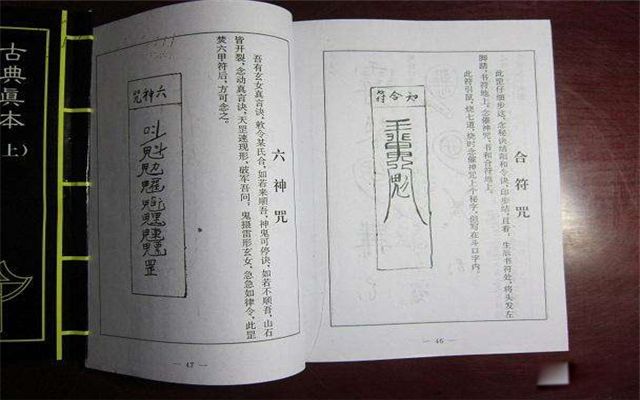 合符咒
此罡仔细步送,念秘诀结和令诀,印步结,直看,生辰书符处,将头发左
脚踏,书符地上,念催神咒,书和合符地上。
此符引鼠,烧七道,烧时念催神咒上个秘字,但写在斗口字内。
和合符
46
六神咒
吾有玄女真言诀,敕令某氏合,如若来顺吾,神鬼可停诀,如若不顺吾,山石
皆开裂,念动真言诀,天罡速现形,破军吾问,鬼摄雷形玄女,急急如律令,此罡
焚六甲符后,方可念之。
六神咒
47
古典眞本
上)